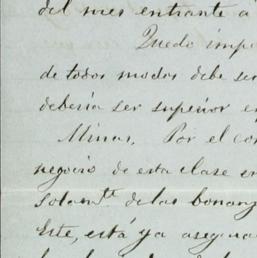 del mes entrante á
Quedo impe
de todos modos debe se
debería ser superior e
Minas. Por el con
negocio de esta clase en
Solamte. de las bonanz
Este, está ya asegura